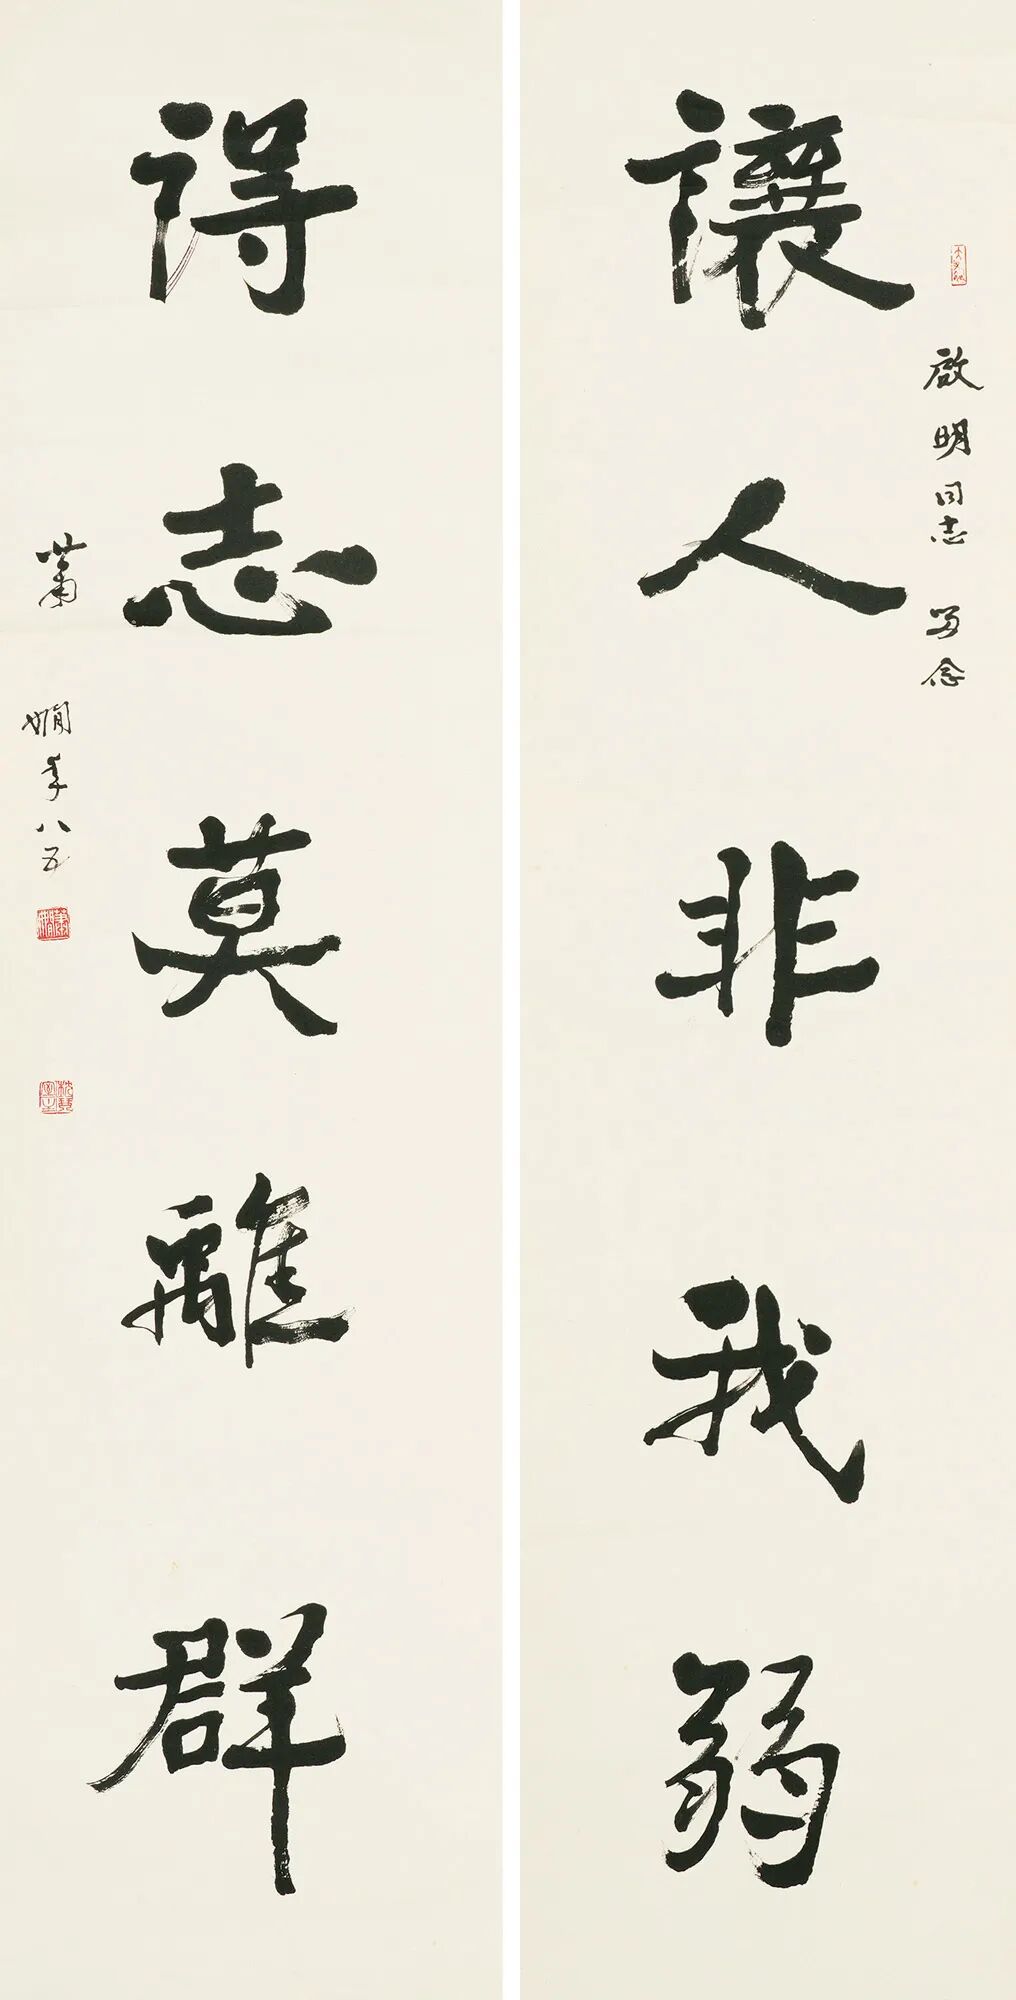 啟明同志 留念
讓人非我弱
得志莫離群
蕭嫻年八五